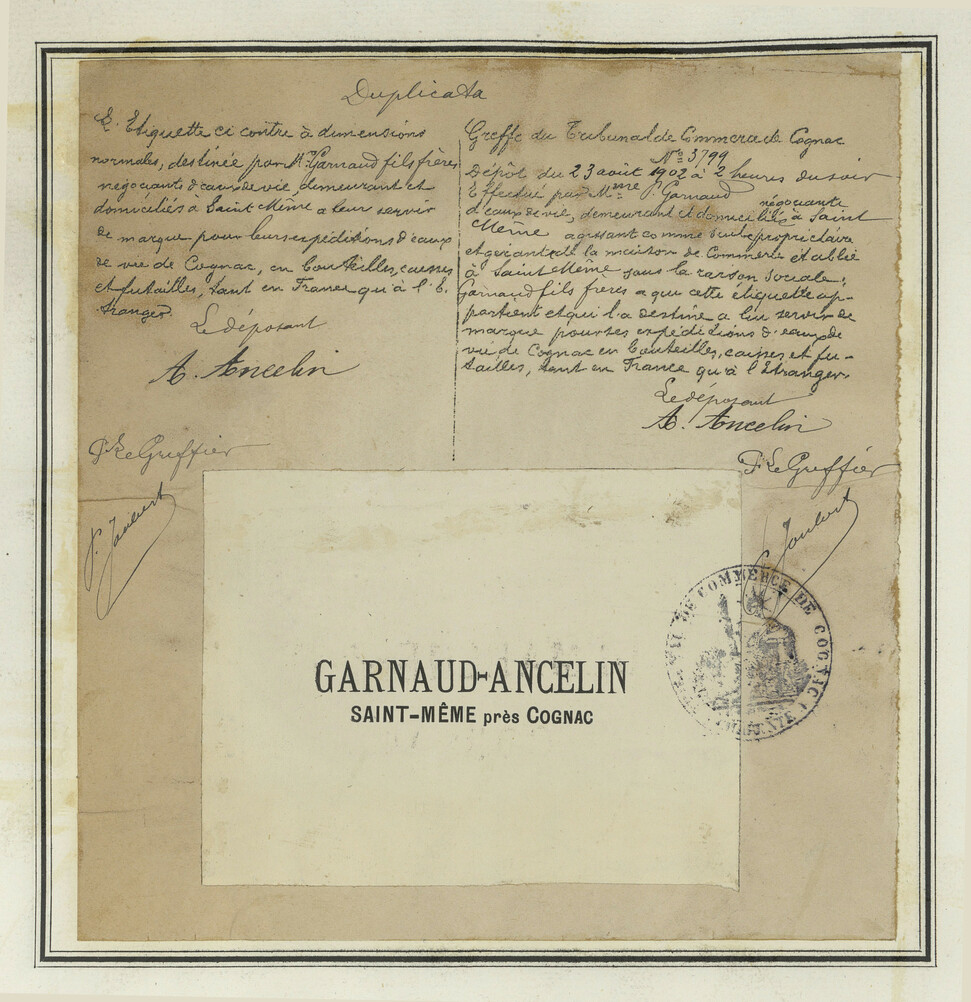 Duplicata
Etiquette ci contre à dimensions
normales, destinée par Mr Garnaud fils frères
négociants d'eaux de vie, demeurant et
domiciliés à Saint Même a leur servir
de marque pour leurs expéditions d'eaux
de vie de Cognac, en bouteilles, caisses
et futailles, tant en France qu'à l'E.
tranger.
Le déposant
A. Ancelin
Le Greffier
Greffe du Tribunal de Commerce de Cognac
No 3799
Dépôt du 23 août 1902 à 2 heures du soir
Effectué par Mme Garnaud négociante
d'eaux de vie, demeurant et domiciliés à Saint
Même agissant comme seule propriétaire
et gérante de la maison de Commerce établie
à Saint Même sous la raison sociale:
Garnaud fils frères a que cette étiquette ap-
partient et qu'il l'a destine a lui servir de
marque pour ses expéditions d'eaux de
vie de Cognac en bouteilles, caisses et fu-
tailles, tant en France qu'à l'Etranger.
Le déposant
A. Ancelin
Le Greffier
Joubert
DE COMMERCE DE COGNAC
GARNAUD-ANCELIN
SAINT-MÊME près COGNAC